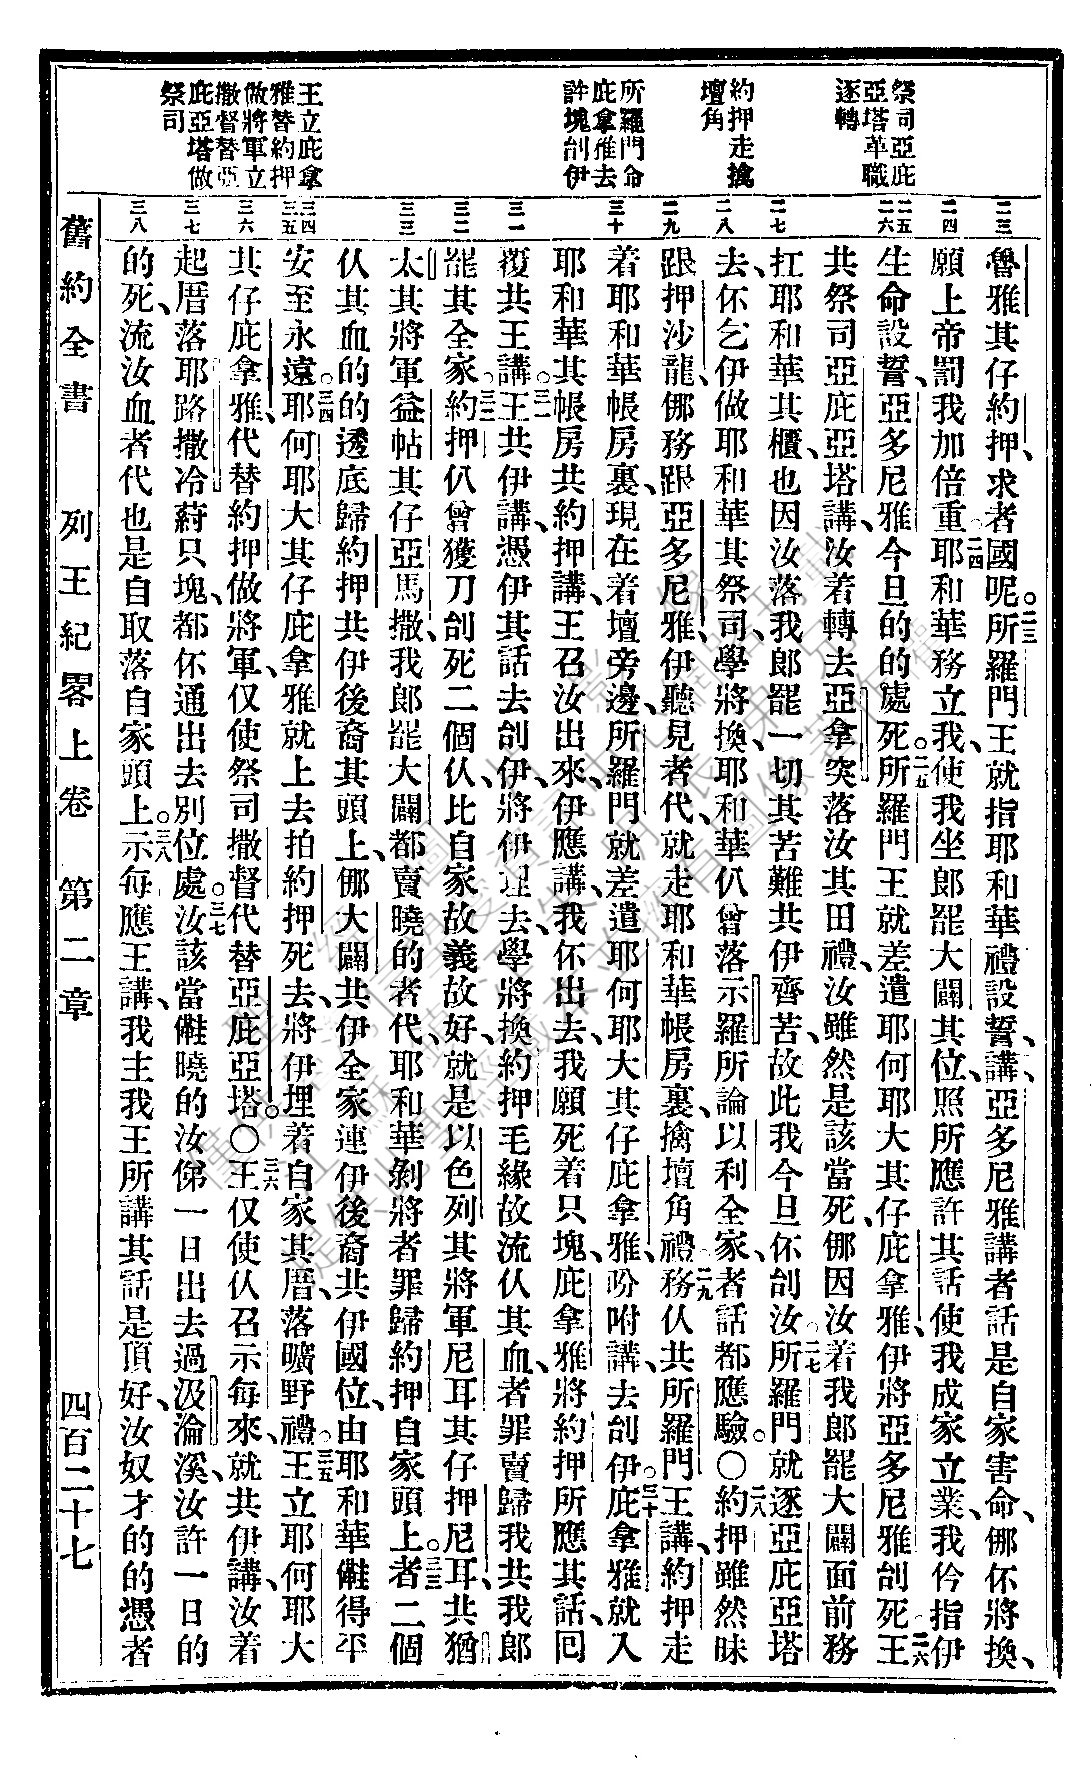 祭司亞庇
亞塔革職
逐轉
約押走擒
壇角
所羅門命
庇拿雅去
許塊刣伊
王立庇拿
雅替約押
做將軍立
撒督替亞
庇亞塔做
祭司
二三
二四
二五
二六
二七
二八
二九
三十
三一
三二
三三
三四
三五
三六
三七
三八
魯雅其仔約押、求者國呢。二三所羅門王就指耶和華禮設誓、講、亞多尼雅講者話是自家害命、㑚伓將換、
願上帝罰我加倍重二四耶和華務立我、使我坐郎罷大闢其位、照所應許其話、使我成家立業、我仱指伊
生命設誓、亞多尼雅今旦的的處死。二五所羅門王就差遣耶何耶大其仔庇拿雅、伊將亞多尼雅刣死、二六王
共祭司亞庇亞塔講、汝着轉去亞拿突落汝其田禮、汝雖然是該當死、㑚因汝着我郎罷大闢面前務
扛耶和華其櫃、也因汝落我郎罷一切其苦難共伊齊苦、故此我今旦伓刣汝。二七所羅門就逐亞庇亞塔
去、伓乞伊做耶和華其祭司、學將換、耶和華仈曾落示羅所論以利全家者話都應驗。〇二八約押雖然昧
跟押沙龍、㑚務跟亞多尼雅、伊聽見者代、就走耶和華帳房裏、擒壇角禮、二九務仈共所羅門王講、約押走
着耶和華帳房裏、現在着壇旁邊、所羅門就差遣耶何耶大其仔庇拿雅、吩咐講、去刣伊。三十庇拿雅就入
耶和華其帳房、共約押講、王召汝出來、伊應講、我伓出去、我願死着只塊、庇拿雅將約押所應其話、回
覆共王講。三一王共伊講、憑伊其話去刣伊、將伊埋去、學將換、約押毛緣故流仈其血、者罪賣歸我共我郎
罷其全家。三二約押仈曾獲刀刣死二個仈、比自家故義故好、就是以色列其將軍尼耳其仔押尼耳、共猶
太其將軍益帖其仔亞馬撒、我郎罷大闢都賣曉的者代、耶和華剝將者罪歸約押自家頭上。三三者二個
仈其血的的透底歸約押共伊後裔其頭上、㑚大闢共伊全家連伊後裔共伊國位、由耶和華䧹得平
安至永遠。三四耶何耶大其仔庇拿雅就上去拍約押死去、將伊埋着自家其厝、落曠野禮、三五王立耶何耶大
其仔庇拿雅、代替約押做將軍、仅使祭司撒督代替亞庇亞塔。〇三六王仅使仈召示每來、就共伊講、汝着
起厝落耶路撒冷、蒔只塊、都伓通出去別位處。三七汝該當䧹曉的汝俤一日出去過汲淪溪、汝許一日的
的死、流汝血者代也是自取落自家頭上。三八示每應王講、我主我王所講其話是頂好、汝奴才的的憑者
舊約全書 列王紀畧上卷 第二章 四百二十七